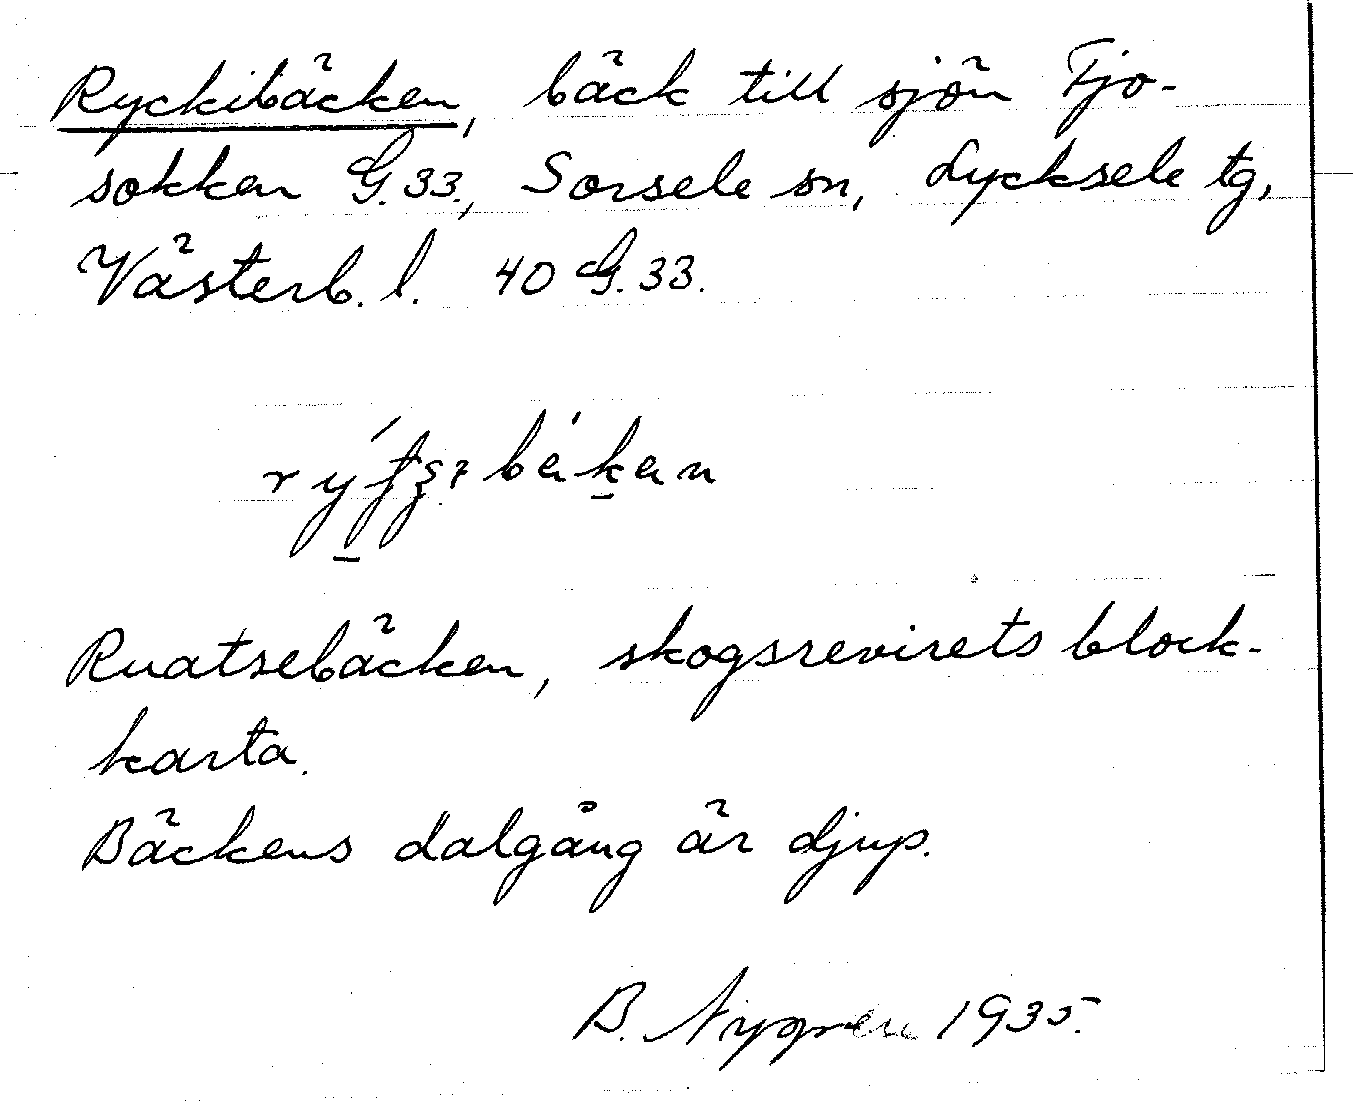 Ryckibäcken, bäck till sjön Fjo-
sokken G.33., Sorsele sn, Lycksele tg,
Västerb. l. 40 G.33.
Ruatsebäcken, skogsrevirets block-
karta.
Bäckens dalgång är djup.
B. Nygren 1935.